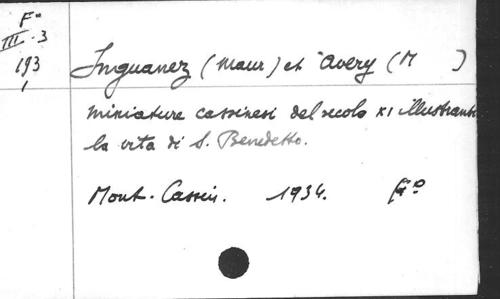 Fº
III-3
193
Inguanez (Maur) et Avery (M )
Miniature cassinesi del secolo XI illustranti
la vita di S. Benedetto.
Mont-Cassin. 1934. Fº